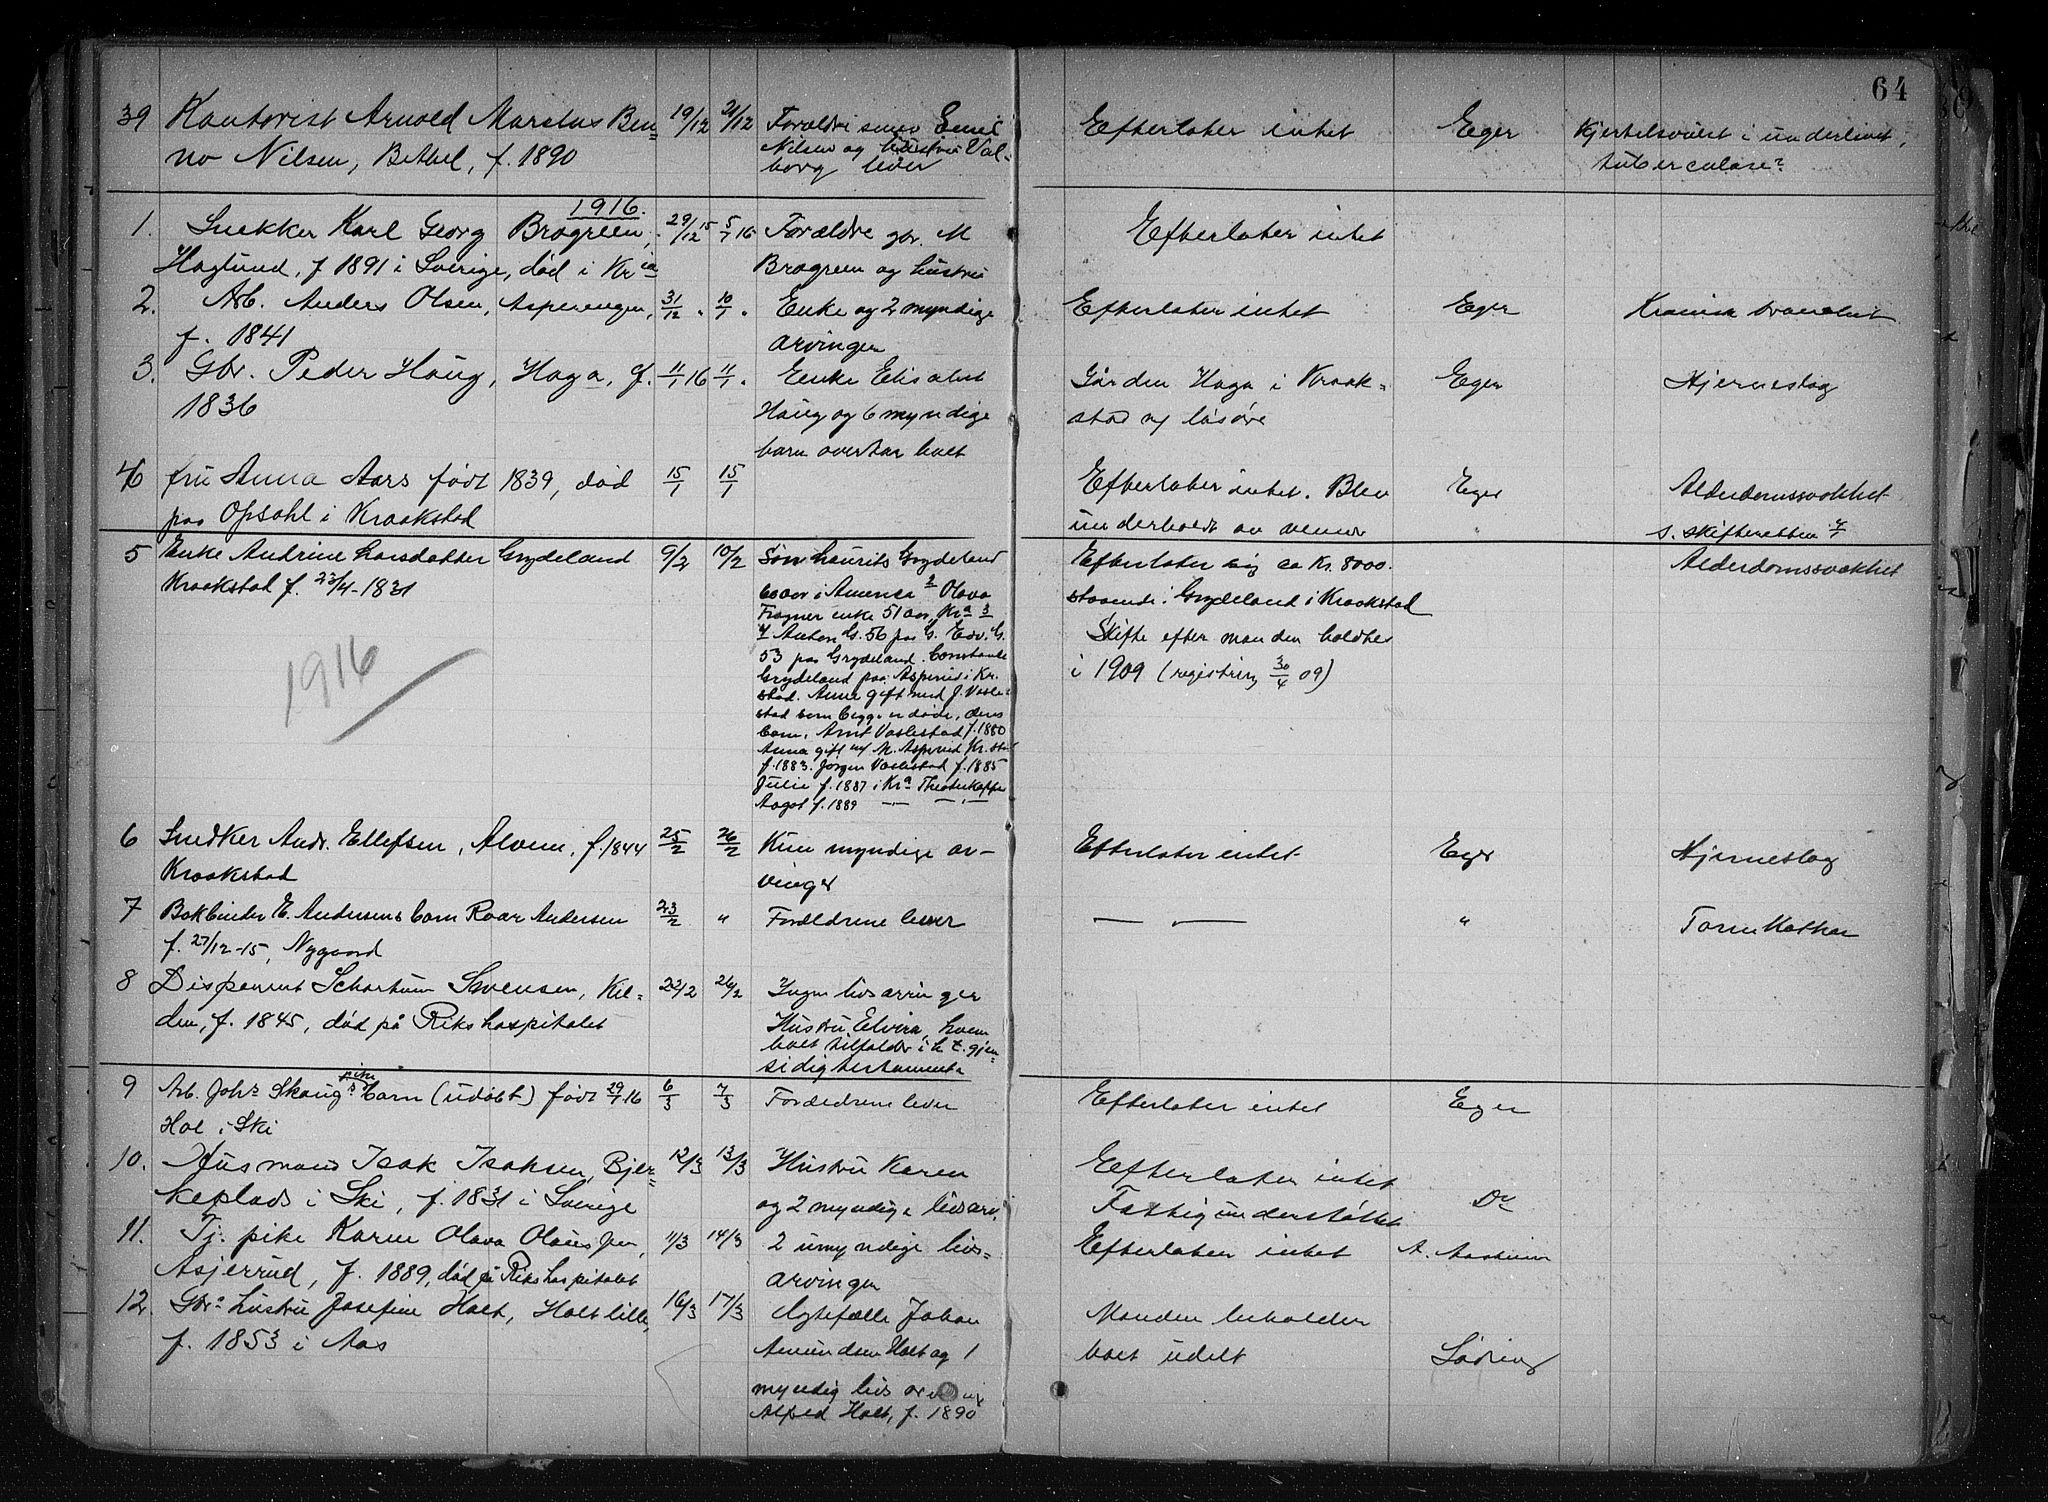 64
39 Kontorist Arnold Marelius Ben- 19/12 21/12 Forældre smed Emil Efterlater intet Eger Kjertelsvulst i underlivet,
no Nilsen, Bethel, f. 1890 Nilsen og hustru Val- tuberculose?
borg lever
1916.
1. Snekker Karl Georg Brogreen, 29/12 15 5/1 16 Forældre gbr. M Efterlater intet
Haglund, f 1891 i Sverige, død i Kria Brogreen og hustru
2. Arb. Anders Olsen, Asperengen, 31/12 " 10/1 " Enke og 2 myndige Efterlater intet Eger Kronisk bronchit
f. 1841 arvinger
3. Gbr. Peder Haug, Haga, f. 11/1 16 11/1 " Enke Elisabet Gården Haga i Kraak- Eger Hjerneslag
1836 Haug og 6 myndige stad og løsøre
barn overtar boet
4 fru Anna Aars født 1839, død 15/1 15/1 Efterlater intet. Blev Eger Alderdomssvakhet
paa Opsahl i Kraakstad underholdt av venner " s. skifteretten 4/7
5 Enke Andrine Larsdatter Grydeland 9/2 10/2 Søn Laurits Grydeland Efterlater sig ca Kr. 8000. Alderdomssvakhet
Kraakstad f. 23/4-1831 60 aar i Amerika 2 Olava staaende i Grydeland i Kraakstad
Fragner enke 51 aar, Kra 3 Skifte efter manden holdtes
4 Anton G. 56 paa G. Edv. G. i 1909 (registrering 30/4 09)
53 paa Grydeland. Constanse
1916 Grydeland paa Asperud i Kr.
stad. Anna gift med J. Vasle-
stad som begge er døde, deres
barn, Arnt Vaslestad f. 1880
Anna gift m/ M. Asperud Kr. stad
f. 1883. Jørgen Vaslestad f. 1885
Julie f. 1887 i Kra Theaterkaffe
Aagot f. 1889 —"— —"—
6 Snedker Andr. Ellefsen, Alvem, f. 1844 25/2 26/2 Kun myndige ar- Efterlater intet Eger Hjerneslag
Kraakstad vinger
7 Bokbinder E. Andersens barn Roar Andersen 23/2 " Forældrene lever — — " Tarmkathar
f. 27/12-15, Nygaard
8 Disponent Schartum Svensen, Kil- 22/2 26/2 Ingen livsarvinger
den, f. 1845, død på Rikshospitalet Hustru Elvira, hvem
boet tilfalder i h. t. gjen-
sidig testamente
9 Arb. Johs Skaugs pike barn (udøbt) født 29/1 16 6/3 7/3 Forældrene lever Efterlater intet Eger
Hol i Ski
10. Husmand Isak Isaksen, Bjer- 12/3 13/3 Hustru Karen Efterlater intet
keplads i Ski, f. 1831 i Sverige og 2 myndige livsarv. Fattigunderstøttet Do
11. Tj. pike Karen Olava Olausen, 11/3 14/3 2 umyndige livs- Efterlater intet A.
Asjerrud, f. 1889, død på Rikshospitalet arvinger
12. Gbr. hustru Josefine Holt, Holt lille, 16/3 17/3 Ægtefælle Johan Manden beholder
f. 1853 i Aas Amundsen Holt og 1 boet udelt Søring
myndig livsarving
Alfred Holt, f. 1890